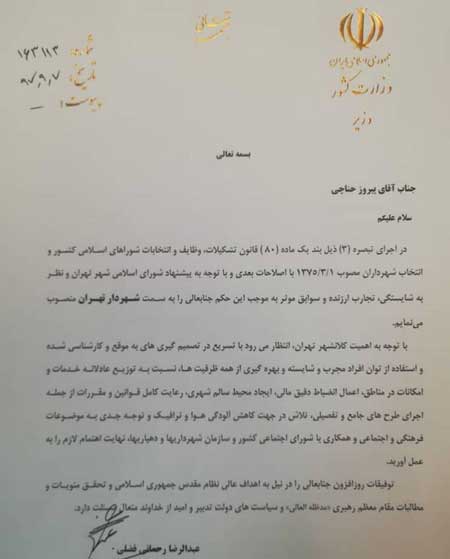 جمهوری اسلامی ایران
وزارت کشور
وزیر
شماره: ۱۶۳۱۱۳
تاریخ: ۹۷,۹,۷
پیوست: —
بسمه تعالی
جناب آقای پیروز حناچی
سلام علیکم
در اجرای تبصره (۳) ذیل بند یک ماده (۸۰) قانون تشکیلات، وظایف و انتخابات شوراهای اسلامی کشور و
انتخاب شهرداران مصوب ۱۳۷۵/۳/۱ با اصلاحات بعدی و با توجه به پیشنهاد شورای اسلامی شهر تهران و نظر
به شایستگی، تجارب ارزنده و سوابق موثر به موجب این حکم جنابعالی را به سمت شهردار تهران منصوب
می‌نمایم.
با توجه به اهمیت کلانشهر تهران، انتظار می رود با تسریع در تصمیم گیری های به موقع و کارشناسی شده
و استفاده از توان افراد مجرب و شایسته و بهره گیری از همه ظرفیت ها، نسبت به توزیع عادلانه خدمات و
امکانات در مناطق، اعمال انضباط دقیق مالی، ایجاد محیط سالم شهری، رعایت کامل قوانین و مقررات از جمله
اجرای طرح های جامع و تفصیلی، تلاش در جهت کاهش آلودگی هوا و ترافیک و توجه جدی به موضوعات
فرهنگی و اجتماعی و همکاری با شورای اجتماعی کشور و سازمان شهرداریها و دهیاریها، نهایت اهتمام لازم را به
عمل آورید.
توفیقات روزافزون جنابعالی را در نیل به اهداف عالی نظام مقدس جمهوری اسلامی و تحقق منویات و
مطالبات مقام معظم رهبری «مدظله العالی» و سیاست های دولت تدبیر و امید از خداوند متعال مسئلت دارد.
عبدالرضا رحمانی فضلی